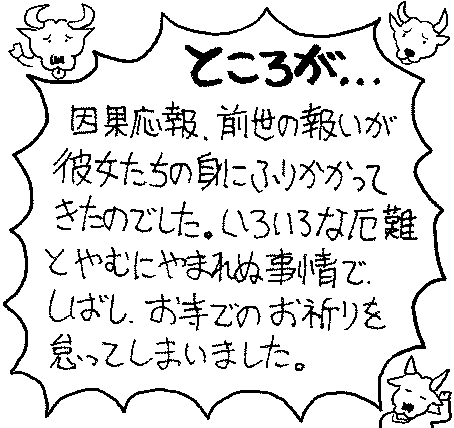 ところが...
因果応報、前世の報いが
彼女たちの身にふりかかって
きたのでした。いろいろな厄難
とやむにやまれぬ事情で、
しばし、お寺でのお祈りを
怠ってしまいました。